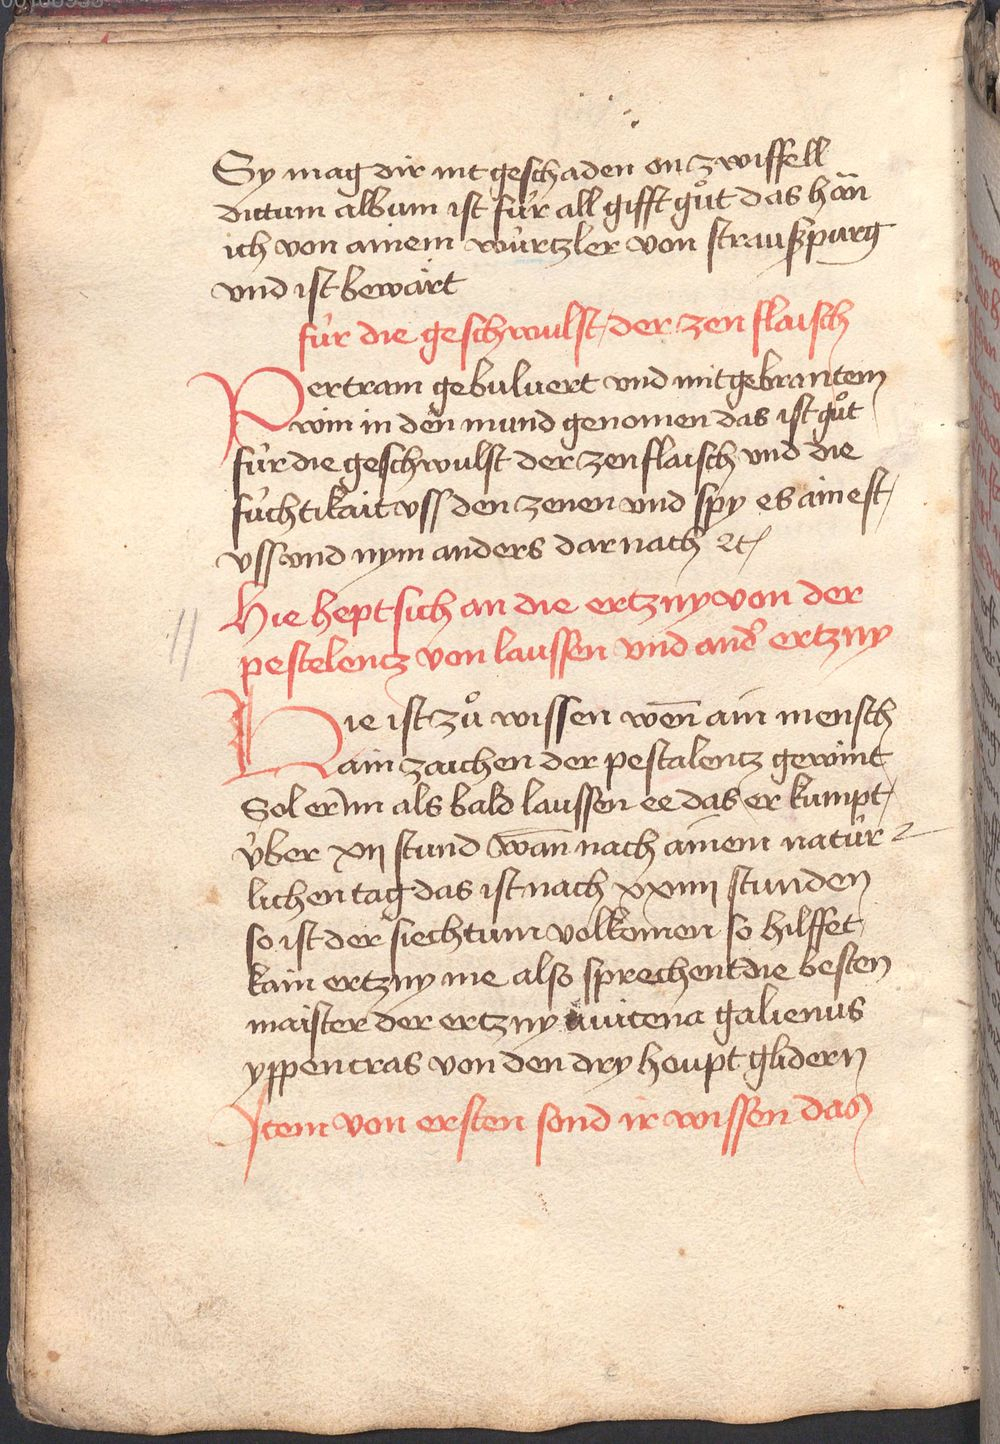 Sy mag dir nit geschaden on zwiffell
dictum album ist für all gifft gůt das hān
ich von ainem würtzler von straußpurg
vnd ist bewart
für die geschwulst der zen flaisch
Pertram gebuluert vnd mit gebrantem
win in den mund genomen das ist gůt
für die geschwulst der zenflaisch vnd die
füchtikait vss den zenen vnd spy es ainest
vss vnd nym anders dar nach ⁊c
Hie hept sich an die ertzny von der
pestelentz von laussen vnd and' ertzny
Hie ist zů wissen weñ ain mensch
ain zaichen der pestalentz gewint
Sol er im als bald laussen ee das er kumpt
über xii stund wañ nach ainem natür
lichen tag das ist nach xxiiii stunden
so ist der siechtum volkomen so hilffet
kain ertzny me also sprechent die besten
maister der ertzny auicena galienus
yppencras von den dry houpt glidern
Item von ersten sond ir wissen das